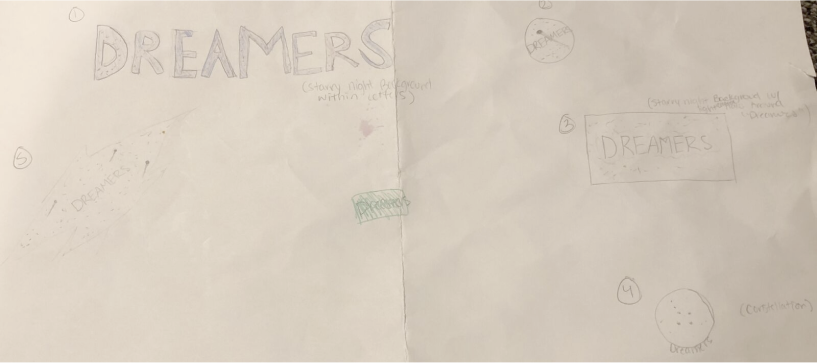 1
DREAMERS
(Starry night Background
within letters)
DREAMERS
2
(starry night Background w/
around
Dreamers)
DREAMERS
5
DREAMERS
4
(Constellation)
Dreamers